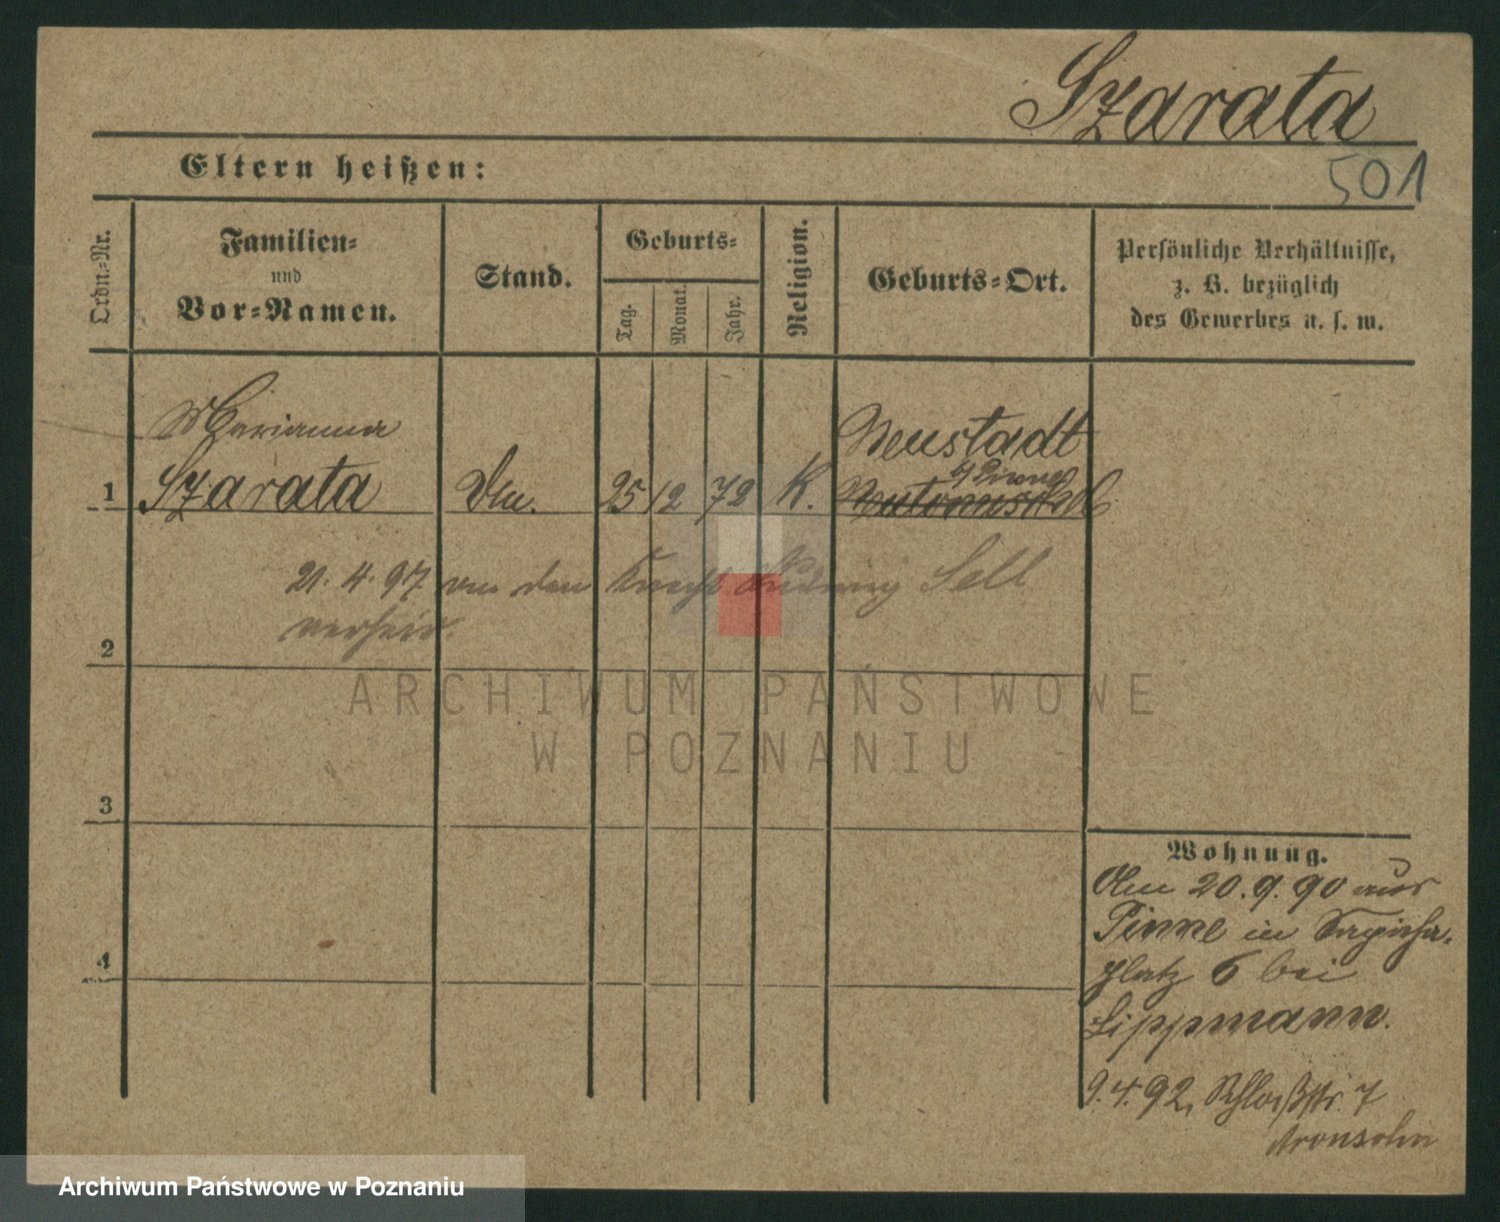 Szarata
501
Eltern heißen:
Ordn.-Nr.
Familien-
und
Vor-Namen.
Stand.
Geburts-
Tag.
Monat.
Jahr.
Religion.
Geburts-Ort.
Persönliche Verhältnisse,
z. B. bezüglich
des Gewerbes u. s. w.
Marianna
Szarata
1
25 12 72 K.
Neustadt
b/Pinne
21. 4. 97 an den Knecht Ludwig Sell
verheir.
2
3
4
Wohnung.
Am 20.9.90 aus
Pinne in Sapieha-
platz 6 bei
Lippmann.
9.4.92, Schloßstr. 7
Aronsohn
ARCHIWUM PAŃSTWOWE
W POZNANIU
Archiwum Państwowe w Poznaniu